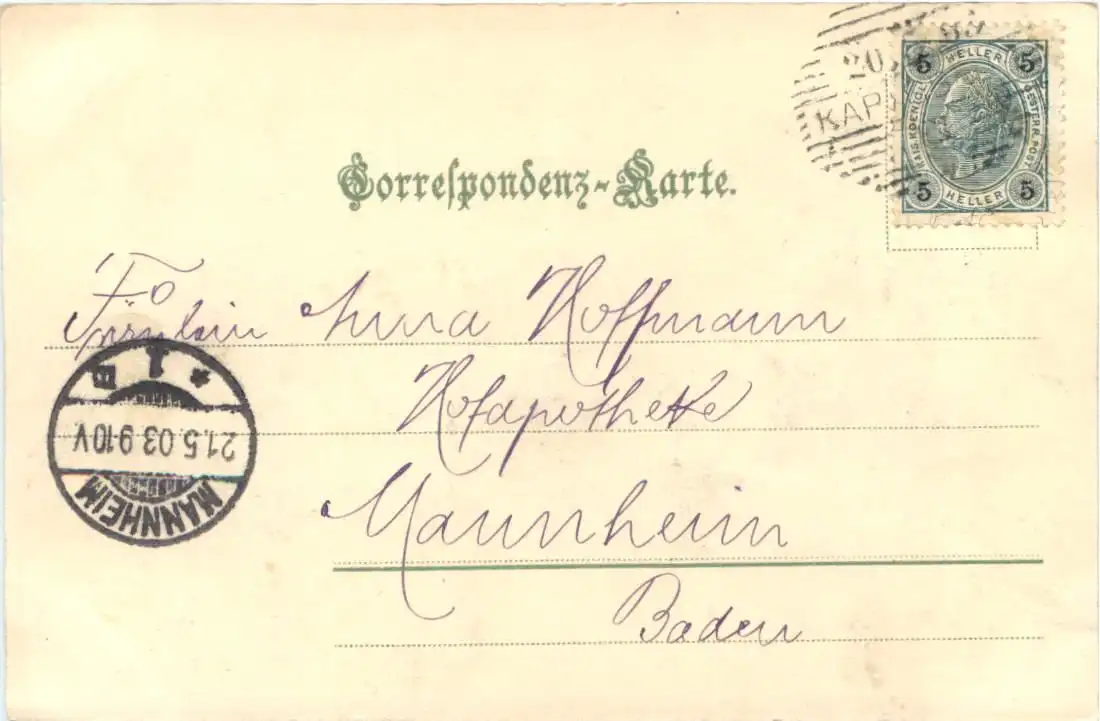 5 HELLER 5
KAIS. KOENIGL. OESTERR. POST
5 HELLER 5
Correspondenz-Karte.
Fräulein Anna Hoffmann
Hofapotheke
Mannheim
Baden
MANNHEIM
21.5.03 9-10V
* 1 B